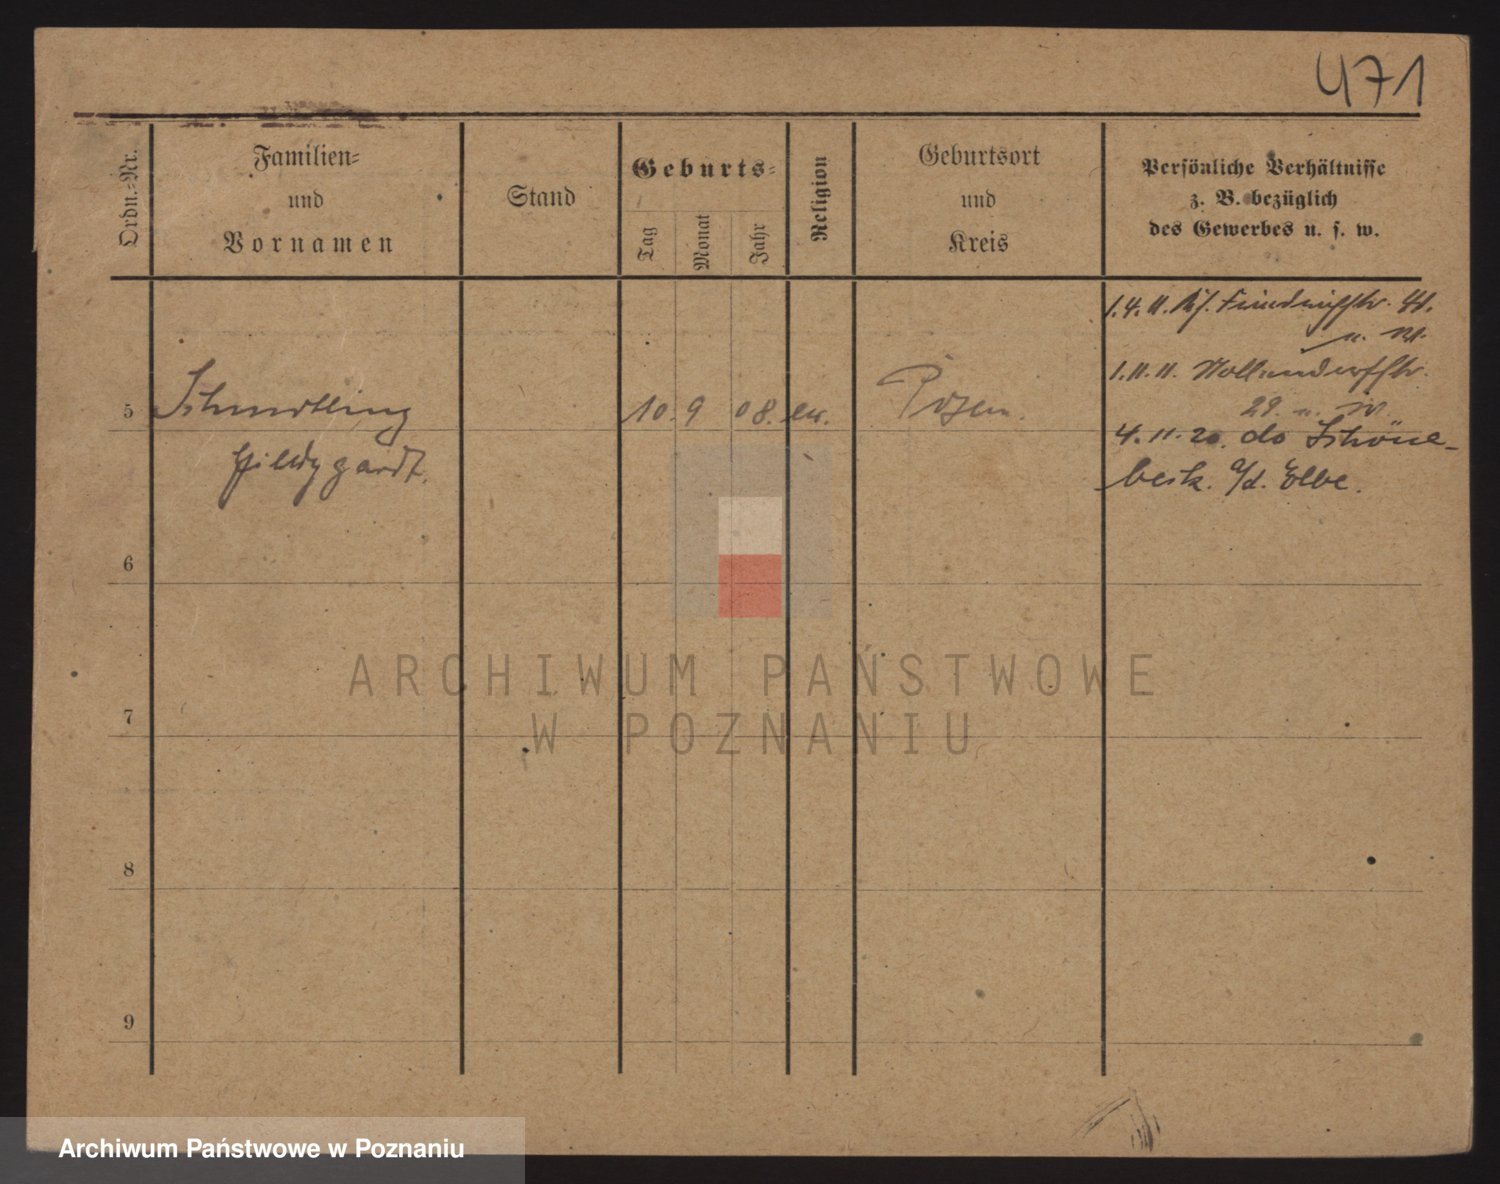 471
Ordn.=Nr.
Familien=
und
Vornamen
Stand
Geburts=
Tag
Monat
Jahr
Religion
Geburtsort
und
Kreis
Persönliche Verhältnisse
z. B. bezüglich
des Gewerbes u. s. w.
1.4.11.
1.11.11.
29.
5
10. 9 08. ev.
Posen.
4.11.20. do Schöne-
beck. a/d. Elbe.
Hildegardt.
6
7
8
9
ARCHIWUM PAŃSTWOWE
W POZNANIU
Archiwum Państwowe w Poznaniu